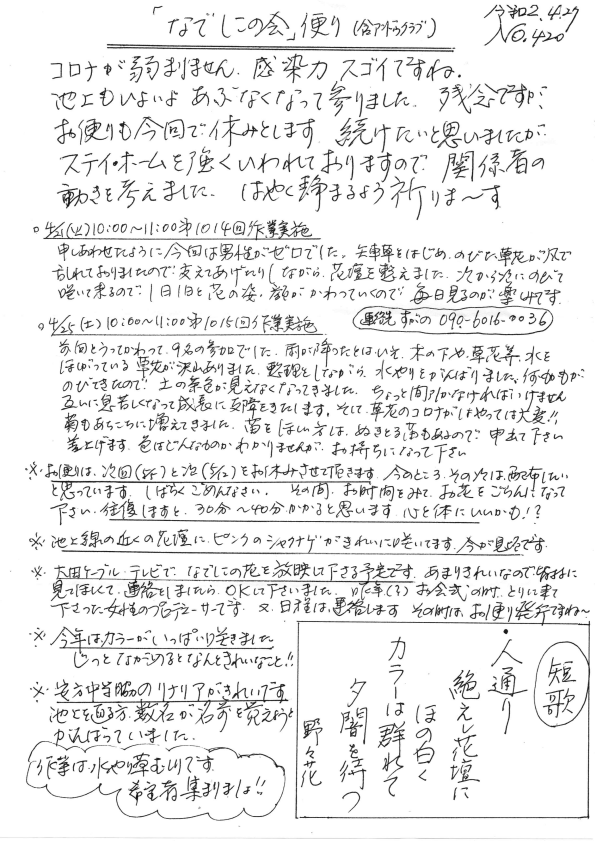 「なでしこの会」便り
令和2.4.27
No.420
コロナが弱まりません. 感染力 スゴイですね.
池上もいよいよ あぶなくなって参りました. 残念ですが、
お便りも今回で休みとします. 続けたいと思いましたが
ステイ・ホームを強くいわれておりますので 関係者の
動きを考えました. はやく静まるよう祈りま〜す
○ 4/21(火)10:00〜11:00 第1014回 作業実施
申しあわせたように今回は男性がゼロでした. 矢車草をはじめ、のびた草花が
乱れておりましたので 支えてあげたりしながら、花壇を整えました. 次から次にのびて
咲いて来るので 1日1日と花の姿、顔がかわっていくので 毎日見るのが楽しみです.
○ 4/25(土)10:00〜11:00 第1015回 作業実施
連絡先 すがの 090-6016-0036
前回とうってかわって 9名の参加でした. 雨が降ったとはいえ、木の下や草花等、水を
ほしがっている草花が沢山ありました. 整理をしながら、水やりをがんばりました. 何もかもが
のびてきたので 土の茶色が見えなくなってきました. ちょっと間引かなければいけません
互いに息苦しくなって成長に支障をきたします. そして草花のコロナがはやっては大変!!
菊もあちこちに増えてきました. 苗をほしい方は、ぬきとる苗もあるので 申出て下さい
差上げます. 色はどんなものかわかりませんが、お持ちになって下さい
※ お便りは、次回(5/5)と次(5/12)をお休みさせて頂きます. 今のところ、その次は配布したい
と思っています. しばらくごめんなさい. その間、お時間をみて、お花をごらんになって
下さい. 往復しますと、30分〜40分かかると思います. 心と体にいいかも!?
※ 池上線の近くの花壇に、ピンクのシャクナゲがきれいに咲いてます. 今が見頃です.
※ 大田ケーブルテレビで、なでしこの花を放映して下さる予定です. あまりきれいなので皆様に
見てほしくて、連絡をしましたら、OKして下さいました. 昨年 お会式の時、とりに来て
下さった女性のプロデューサーです. 又、日程は連絡します その時は、お便り発行ですね〜
※ 今年はカラーがいっぱい咲きました
じっとながめるとなんときれいなこと!!
※ 実方中寺脇のリナリアがきれいです
池上を通る方、数名が名前を覚えようと
がんばっていました.
作業は、水やり草むしりです.
希望者集まりましょ!!
短歌
・人通り
絶えし花壇に
ほの白く
カラーは群れて
夕闇を待つ
野々花